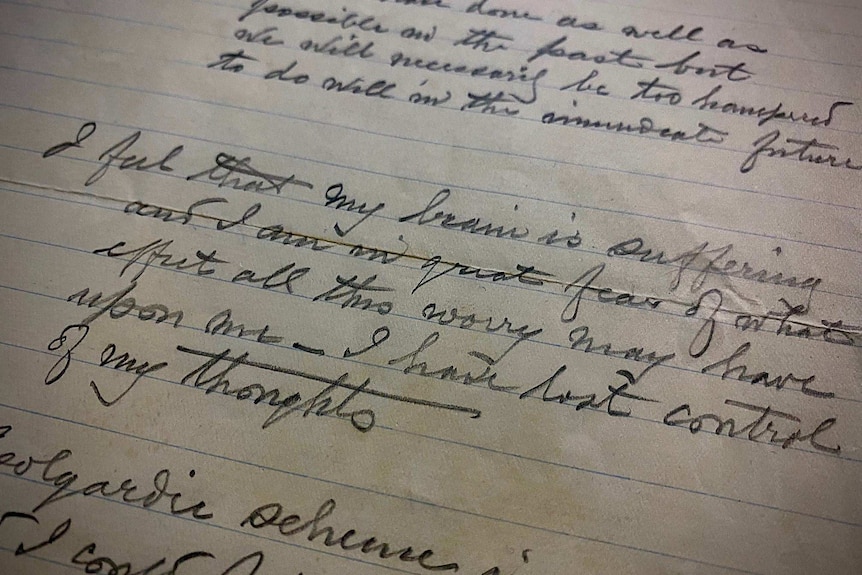 done as well as
possible in the past but
we will necessarily be too hampered
to do well in the immediate future
I feel that my brain is suffering
and I am in great fear of what
effect all this worry may have
upon me – I have lost control
of my thoughts
Coolgardie scheme is
I could